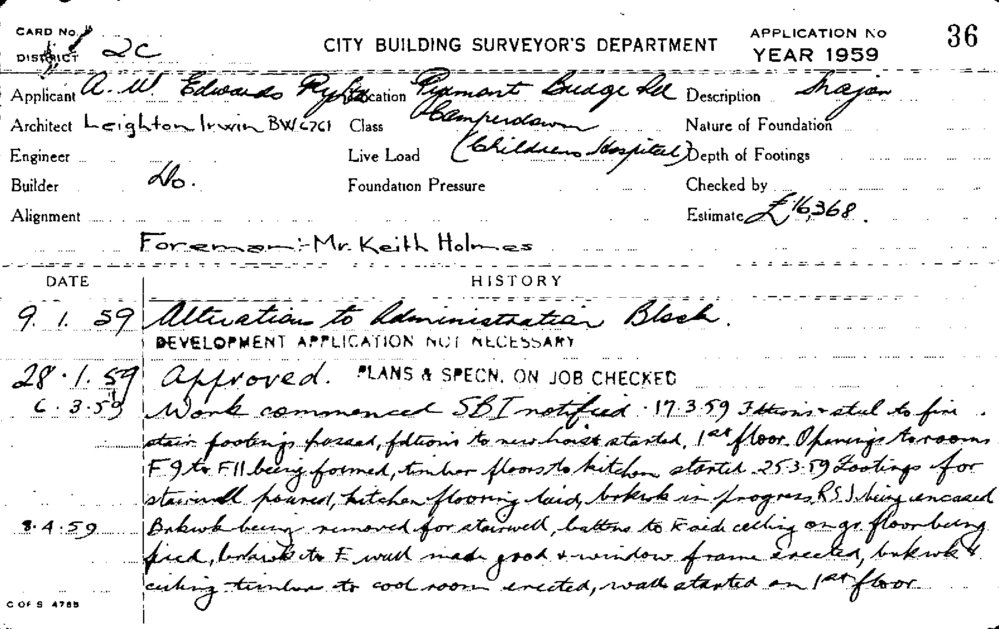 CARD No.
CITY BUILDING SURVEYOR'S DEPARTMENT
APPLICATION No 36
DISTRICT 2C
YEAR 1959
Applicant A. W. Edwards Pty Ltd Location Pyrmont Bridge Rd Description
Architect Leighton Irwin BW6761 Class Camperdown Nature of Foundation
Engineer Live Load (Childrens Hospital) Depth of Footings
Builder Do. Foundation Pressure Checked by
Alignment Estimate £16,368.
Foreman:- Mr. Keith Holmes
DATE HISTORY
9. 1. 59 Alterations to Administration Block.
DEVELOPMENT APPLICATION NOT NECESSARY
28. 1. 59 Approved. PLANS & SPECN. ON JOB CHECKED
6. 3. 59 Work commenced SBI notified. 17.3.59 Fdtions & steel to fire
stair footings passed, fdtions to new hoist started, 1st floor. Openings to rooms
F9 to F11 being formed, timber floors to kitchen started. 25.3.59 Footings for
stairwell poured, kitchen flooring laid, brkwk in progress, RSJ being encased
8. 4. 59 Brkwk being removed for stairwell, battens to ceiling on gr floor being
fixed, brkwk to E wall made good & window frame erected, brkwk &
ceiling timbers to cool room erected, walls started on 1st floor
C OF S 4785